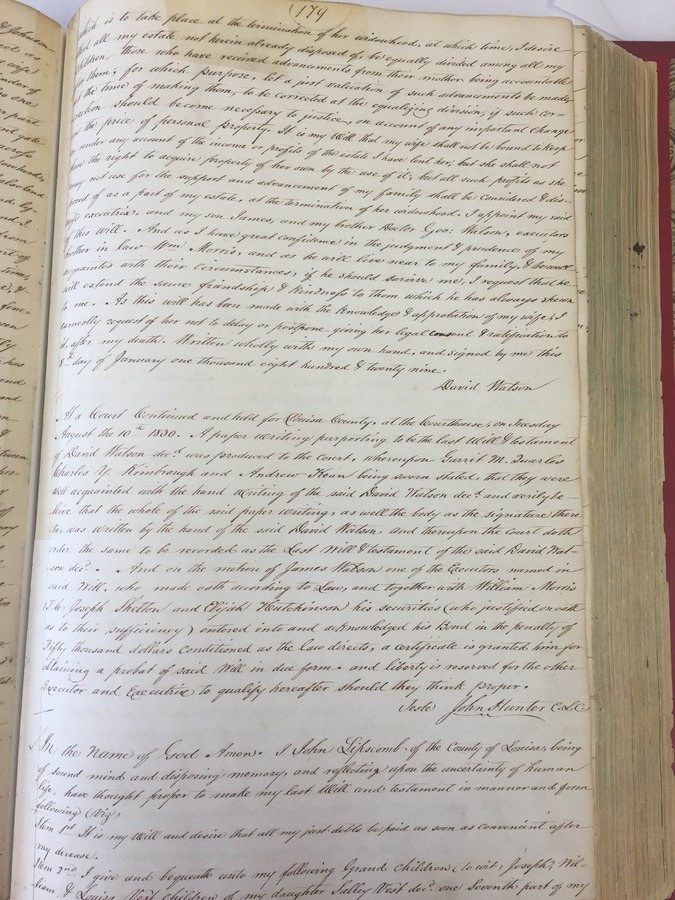 (179
which is to take place at the termination of her widowhood, at which time, I desire
that all my estate not herein already disposed of, be equally divided among all my
children, those who have received advancements from their mother being accountable
for them; for which purpose, let a just valuation of such advancements be made,
at the time of making them, to be corrected at the equalizing division, if such cor-
rection should become necessary to justice, on account of any important change
in the price of personal property. It is my Will that my wife shall not be bound to keep
or render any account of the income or profits of the estate I have lent her; but she shall not
have the right to acquire property of her own by the use of it; but all such profits as she
may not use for the support and advancement of my family shall be considered & dis-
posed of as a part of my estate, at the termination of her widowhood. I appoint my said
wife executrix, and my son James, and my brother Doctor Geo: Watson, executors
of this will. And as I have great confidence in the judgment & prudence of my
brother in law Wm Morris, and as he will live near to my family, & be well
acquainted with their circumstances; if he should survive me, I request that he
will extend the same friendship & kindness to them which he has always shewn
to me. As this will has been made with the knowledge & approbation of my wife, I
earnestly request of her not to delay or postpone giving her legal consent & ratification to
it, after my death. Written wholly with my own hand, and signed by me this
8th day of January one thousand eight hundred & twenty nine.
David Watson
At a Court Continued and held for Louisa County, at the Courthouse, on Tuesday
August the 10th 1830. A paper writing purporting to be the last Will & testament
of David Watson decd was produced to the Court, whereupon Garrit M. Quarles
Charles Y. Kimbrough and Andrew Kean being sworn stated that they were
well acquainted with the hand writing of the said David Watson decd and verily be-
lieve that the whole of the said paper writing, as well the body as the signature there
to, was written by the hand of the said David Watson, and thereupon the Court doth
order the same to be recorded as the Last Will & testament of the said David Wat-
son decd. And on the motion of James Watson one of the Executors named in
said Will, who made oath according to Law, and together with William Morris
Joseph Shelton and Elijah Hutchinson his securities (who justified on oath
as to their sufficiency) entered into and acknowledged his Bond in the penalty of
Fifty thousand dollars conditioned as the law directs, a certificate is granted him for
obtaining a probat of said Will in due form. and liberty is reserved for the other
Executor and Executrix to qualify hereafter should they think proper.
Teste John Hunter C.L.C
In the Name of God Amen. I John Lipscomb of the County of Louisa, being
of sound mind and disposing memory, and reflecting upon the uncertainty of human
life, have thought proper to make my last Will and testament in mannor and form
following (Viz)
Item 1st It is my Will and desire that all my just debts be paid as soon as convenient after
my decease.
Item 2nd I give and bequeath unto my following Grand Children (to wit, Joseph, Wil-
liam & Louisa Vest children of my daughter Salley Vest decd. one Seventh part of my